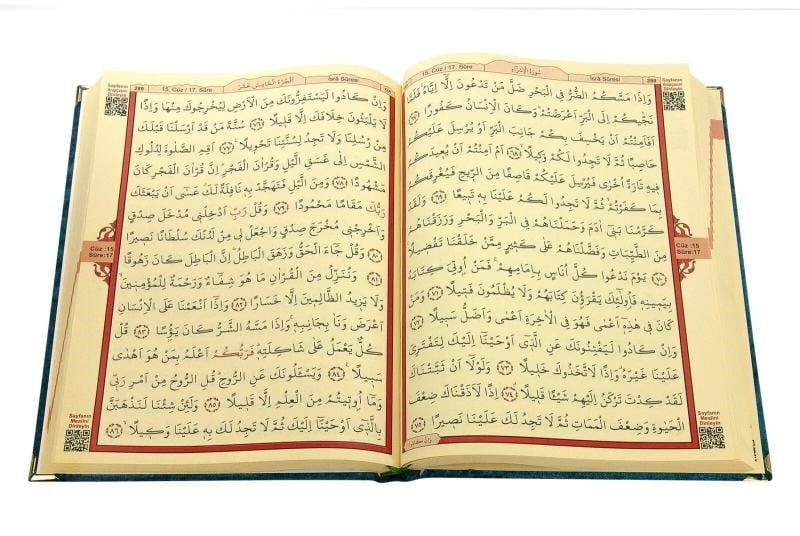 15. Cüz / 17. Sûre
سورة الإسراء
İsrâ Sûresi
288
Sayfanın
Arapçasını
Dinleyin
وَاِذَا مَسَّكُمُ الضُّرُّ فِي الْبَحْرِ ضَلَّ مَنْ تَدْعُونَ اِلَّٓا اِيَّاهُۚ فَلَمَّا
نَجّٰيكُمْ اِلَى الْبَرِّ اَعْرَضْتُمْۜ وَكَانَ الْاِنْسَانُ كَفُورًا ﴿٦٧﴾
اَفَاَمِنْتُمْ اَنْ يَخْسِفَ بِكُمْ جَانِبَ الْبَرِّ اَوْ يُرْسِلَ عَلَيْكُمْ
حَاصِبًا ثُمَّ لَا تَجِدُوا لَكُمْ وَكِيلًاۙ ﴿٦٨﴾ اَمْ اَمِنْتُمْ اَنْ يُعِيدَكُمْ
فِيهِ تَارَةً اُخْرٰى فَيُرْسِلَ عَلَيْكُمْ قَاصِفًا مِنَ الرِّيحِ فَيُغْرِقَكُمْ
بِمَا كَفَرْتُمْۙ ثُمَّ لَا تَجِدُوا لَكُمْ عَلَيْنَا بِهِ تَبِيعًا ﴿٦٩﴾ وَلَقَدْ
كَرَّمْنَا بَنِٓي اٰدَمَ وَحَمَلْنَاهُمْ فِي الْبَرِّ وَالْبَحْرِ وَرَزَقْنَاهُمْ
مِنَ الطَّيِّبَاتِ وَفَضَّلْنَاهُمْ عَلٰى كَثِيرٍ مِمَّنْ خَلَقْنَا تَفْضِيلًا۟
﴿٧٠﴾ يَوْمَ نَدْعُوا كُلَّ اُنَاسٍ بِاِمَامِهِمْۚ فَمَنْ اُو۫تِيَ كِتَابَهُ
بِيَمِينِهِ فَاُو۬لٰٓئِكَ يَقْرَؤُ۫نَ كِتَابَهُمْ وَلَا يُظْلَمُونَ فَتِيلًا ﴿٧١﴾ وَمَنْ
كَانَ فِي هٰذِهِٓ اَعْمٰى فَهُوَ فِي الْاٰخِرَةِ اَعْمٰى وَاَضَلُّ سَبِيلًا ﴿٧٢﴾
وَاِنْ كَادُوا لَيَفْتِنُونَكَ عَنِ الَّذِٓي اَوْحَيْنَٓا اِلَيْكَ لِتَفْتَرِيَ
عَلَيْنَا غَيْرَهُۗ وَاِذًا لَاتَّخَذُوكَ خَلِيلًا ﴿٧٣﴾ وَلَوْلَٓا اَنْ ثَبَّتْنَاكَ
لَقَدْ كِدْتَ تَرْكَنُ اِلَيْهِمْ شَيْـًٔا قَلِيلًاۗ ﴿٧٤﴾ اِذًا لَاَذَقْنَاكَ ضِعْفَ
الْحَيٰوةِ وَضِعْفَ الْمَمَاتِ ثُمَّ لَا تَجِدُ لَكَ عَلَيْنَا نَصِيرًا ﴿٧٥﴾
وَاِنْ كَادُوا
Cüz :15
Sûre:17
Sayfanın
Mealini
Dinleyin
Sayfanın
Arapçasını
Dinleyin
289
15. Cüz / 17. Sûre
الجزء الخامس عشر
İsrâ Sûresi
وَاِنْ كَادُوا لَيَسْتَفِزُّونَكَ مِنَ الْاَرْضِ لِيُخْرِجُوكَ مِنْهَا وَاِذًا
لَا يَلْبَثُونَ خِلَافَكَ اِلَّا قَلِيلًا ﴿٧٦﴾ سُنَّةَ مَنْ قَدْ اَرْسَلْنَا قَبْلَكَ
مِنْ رُسُلِنَا وَلَا تَجِدُ لِسُنَّتِنَا تَحْوِيلًا۟ ﴿٧٧﴾ اَقِمِ الصَّلٰوةَ لِدُلُوكِ
الشَّمْسِ اِلٰى غَسَقِ الَّيْلِ وَقُرْاٰنَ الْفَجْرِۜ اِنَّ قُرْاٰنَ الْفَجْرِ كَانَ
مَشْهُودًا ﴿٧٨﴾ وَمِنَ الَّيْلِ فَتَهَجَّدْ بِهِ نَافِلَةً لَكَۗ عَسٰٓى اَنْ يَبْعَثَكَ
رَبُّكَ مَقَامًا مَحْمُودًا ﴿٧٩﴾ وَقُلْ رَبِّ اَدْخِلْنِي مُدْخَلَ صِدْقٍ
وَاَخْرِجْنِي مُخْرَجَ صِدْقٍ وَاجْعَلْ لِي مِنْ لَدُنْكَ سُلْطَانًا نَصِيرًا
﴿٨٠﴾ وَقُلْ جَٓاءَ الْحَقُّ وَزَهَقَ الْبَاطِلُۜ اِنَّ الْبَاطِلَ كَانَ زَهُوقًا
﴿٨١﴾ وَنُنَزِّلُ مِنَ الْقُرْاٰنِ مَا هُوَ شِفَٓاءٌ وَرَحْمَةٌ لِلْمُؤْمِنِينَۙ
وَلَا يَزِيدُ الظَّالِمِينَ اِلَّا خَسَارًا ﴿٨٢﴾ وَاِذَٓا اَنْعَمْنَا عَلَى الْاِنْسَانِ
اَعْرَضَ وَنَاٰ بِجَانِبِهِۚ وَاِذَا مَسَّهُ الشَّرُّ كَانَ يَؤُ۫سًا ﴿٨٣﴾ قُلْ
كُلٌّ يَعْمَلُ عَلٰى شَاكِلَتِهِۜ فَرَبُّكُمْ اَعْلَمُ بِمَنْ هُوَ اَهْدٰى
سَبِيلًا۟ ﴿٨٤﴾ وَيَسْـَٔلُونَكَ عَنِ الرُّوحِۜ قُلِ الرُّوحُ مِنْ اَمْرِ رَبِّي
وَمَٓا اُو۫تِيتُمْ مِنَ الْعِلْمِ اِلَّا قَلِيلًا ﴿٨٥﴾ وَلَئِنْ شِئْنَا لَنَذْهَبَنَّ
بِالَّذِٓي اَوْحَيْنَٓا اِلَيْكَ ثُمَّ لَا تَجِدُ لَكَ بِهِ عَلَيْنَا وَكِيلًاۙ ﴿٨٦﴾
Cüz :15
Sûre:17
Sayfanın
Mealini
Dinleyin